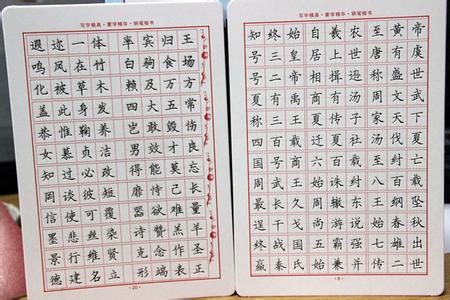 写字模具·蒙学精华·钢笔楷书
遐迩一体 率宾归王
鸣凤在竹 白驹食场
化被草木 赖及万方
盖此身发 四大五常
恭惟鞠养 岂敢毁伤
女慕贞洁 男效才良
知过必改 得能莫忘
罔谈彼短 靡恃己长
信使可覆 器欲难量
墨悲丝染 诗赞羔羊
景行维贤 克念作圣
德建名立 形端表正
·20·
写字模具·蒙学精华·钢笔楷书
知终始自羲农至黄帝
号三皇居上世唐有虞
号二帝相揖逊称盛世
夏有禹商有汤周文武
称三王夏传子家天下
四百载迁夏社汤伐夏
国号商六百载至纣亡
周武王始诛纣八百载
最长久周辙东王纲坠
逞干戈尚游说始春秋
终战国五霸强七雄出
嬴秦氏始兼并传二世
·8·